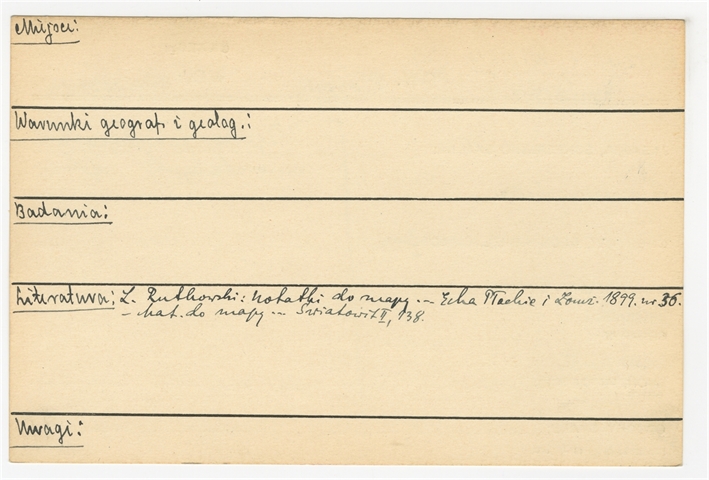 Miejsc:
Warunki geograf. i geolog.:
Badania:
Literatura: L. Rutkowski: Notatki do mapy ... Echa Płockie i Łomż. 1899. nr 36.
– Mat. do mapy ... Światowit II, 138.
Uwagi: